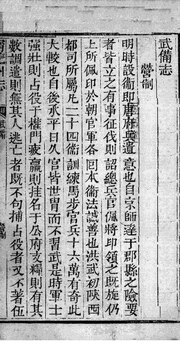 武備志
營制
明時設衛即唐府兵遺意也自京師達于郡縣之險要
者皆立之有事征伐則詔總兵官佩將印領之旣旋仍
上所佩印於朝官軍各囘本衛法誠善也洪武初陝西
都司所屬凡二十四衛訓練馬步官兵十六萬有奇此
大較也自後承平日久官皆世冑而不習武是時軍士
強壯則占役于權門疲羸則挂名于公府支糧則有其
數調遣則無其人逃亡者旣不句捕占役者又不著伍
州志